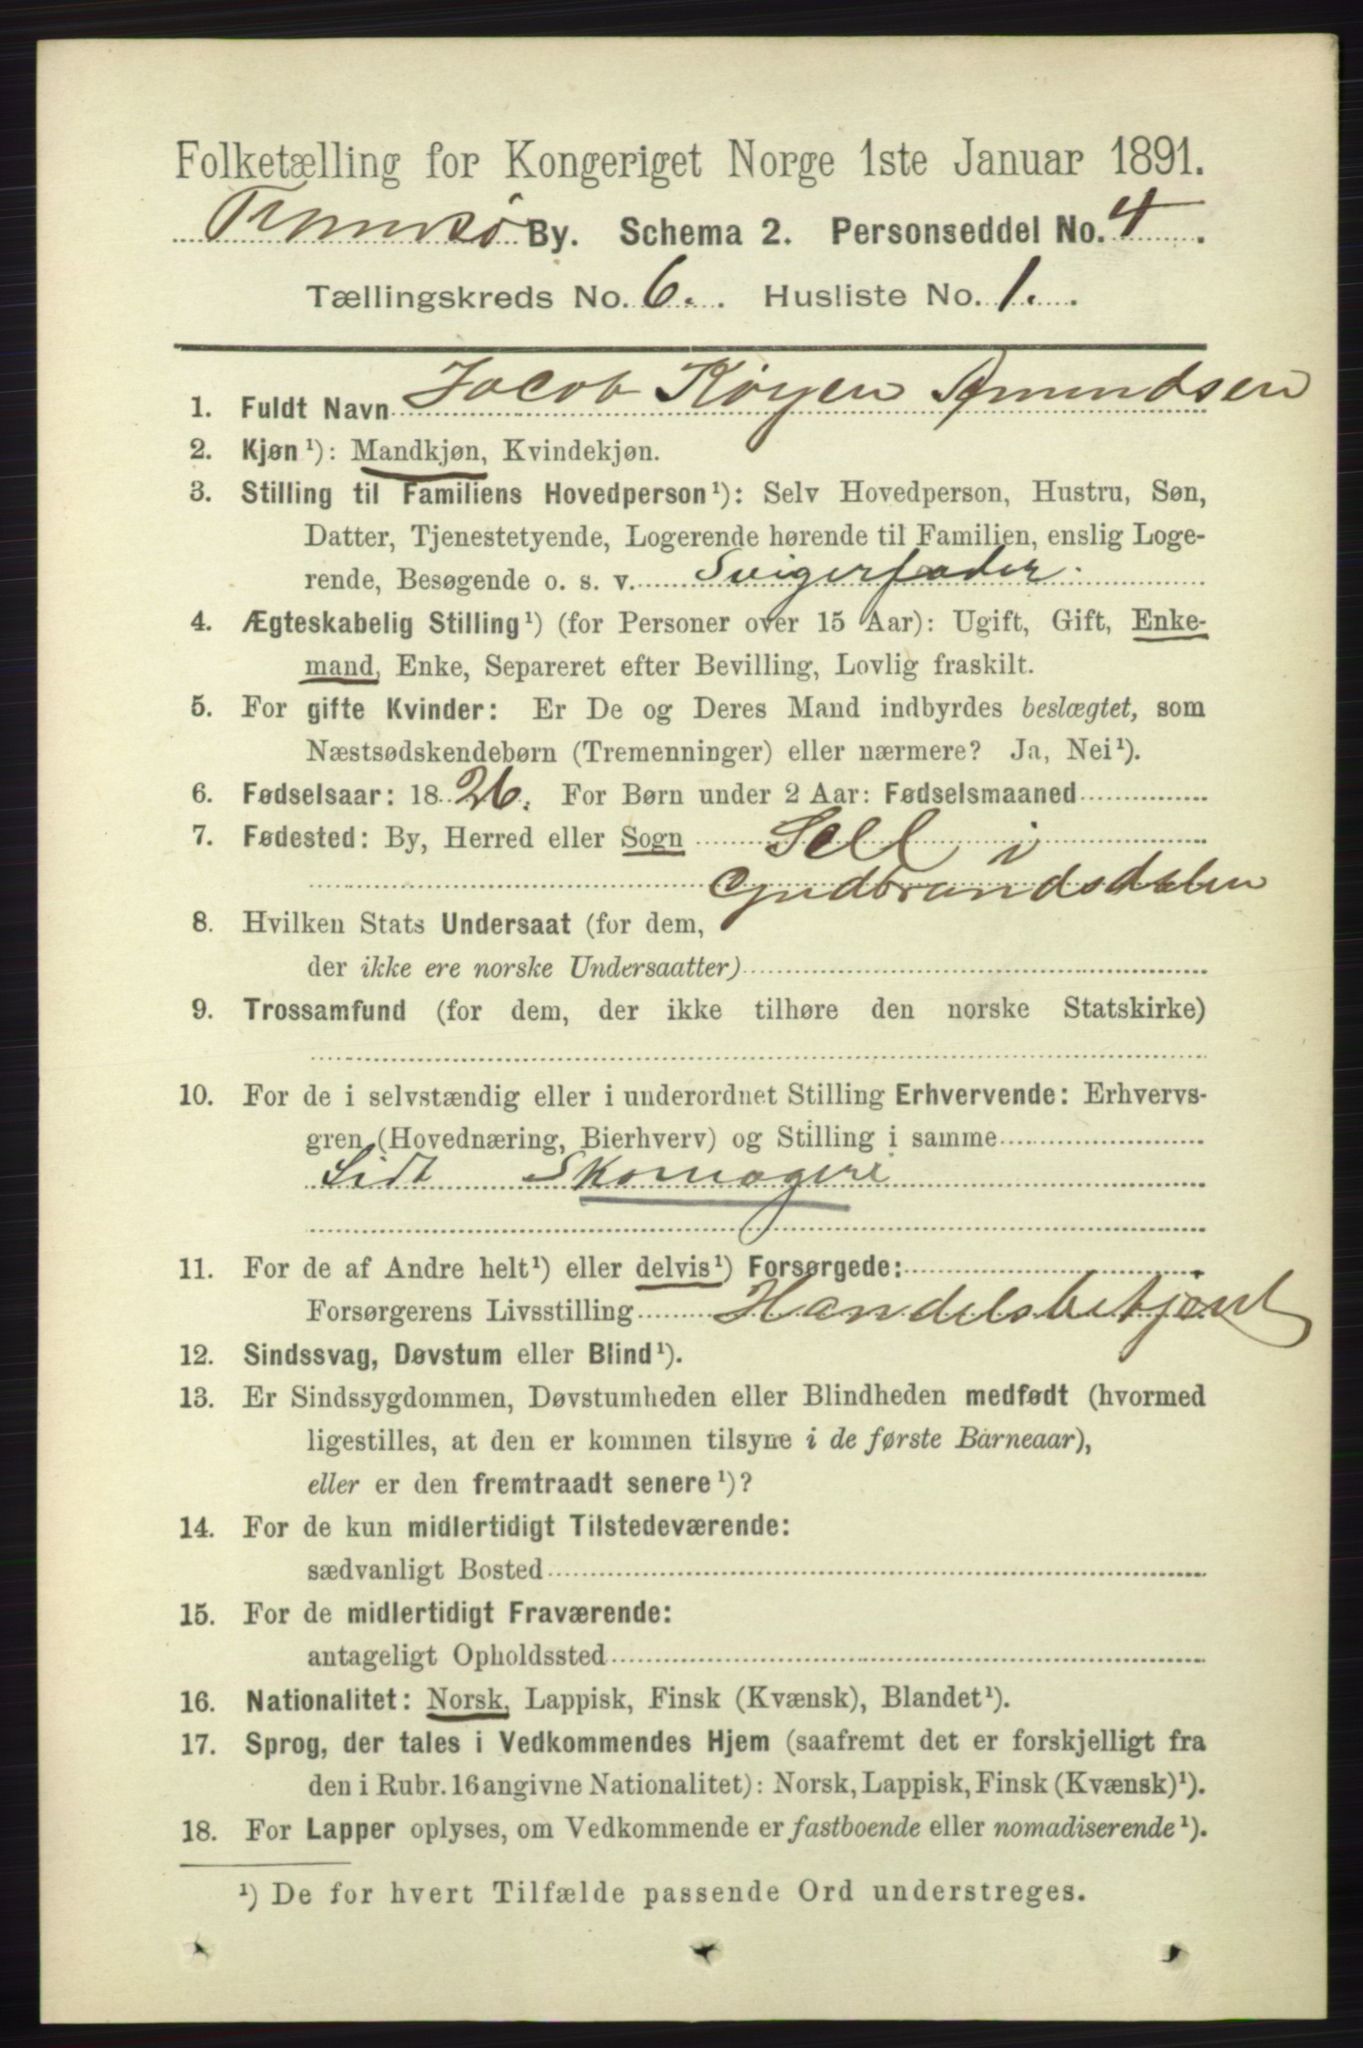 Folketælling for Kongeriget Norge 1ste Januar 1891.
Tromsø By. Schema 2. Personseddel No. 4.
Tællingskreds No. 6. Husliste No. 1.
1. Fuldt Navn Jacob Amundsen
2. Kjøn¹): Mandkjøn, Kvindekjøn.
3. Stilling til Familiens Hovedperson¹): Selv Hovedperson, Hustru, Søn,
Datter, Tjenestetyende, Logerende hørende til Familien, enslig Loge-
rende, Besøgende o. s. v. Svigerfader.
4. Ægteskabelig Stilling¹) (for Personer over 15 Aar): Ugift, Gift, Enke-
mand, Enke, Separeret efter Bevilling, Lovlig fraskilt.
5. For gifte Kvinder: Er De og Deres Mand indbyrdes beslægtet, som
Næstsødskendebørn (Tremenninger) eller nærmere? Ja, Nei¹).
6. Fødselsaar: 1826. For Børn under 2 Aar: Fødselsmaaned
7. Fødested: By, Herred eller Sogn Sell i
Gudbrandsdalen
8. Hvilken Stats Undersaat (for dem,
der ikke ere norske Undersaatter)
9. Trossamfund (for dem, der ikke tilhøre den norske Statskirke)
10. For de i selvstændig eller i underordnet Stilling Erhvervende: Erhvervs-
gren (Hovednæring, Bierhverv) og Stilling i samme
Lidt Skomageri
11. For de af Andre helt¹) eller delvis¹) Forsørgede:
Forsørgerens Livsstilling Handelsbetjent
12. Sindssvag, Døvstum eller Blind¹).
13. Er Sindssygdommen, Døvstumheden eller Blindheden medfødt (hvormed
ligestilles, at den er kommen tilsyne i de første Barneaar),
eller er den fremtraadt senere¹)?
14. For de kun midlertidigt Tilstedeværende:
sædvanligt Bosted
15. For de midlertidigt Fraværende:
antageligt Opholdssted
16. Nationalitet: Norsk, Lappisk, Finsk (Kvænsk), Blandet¹).
17. Sprog, der tales i Vedkommendes Hjem (saafremt det er forskjelligt fra
den i Rubr. 16 angivne Nationalitet): Norsk, Lappisk, Finsk (Kvænsk)¹).
18. For Lapper oplyses, om Vedkommende er fastboende eller nomadiserende¹).
¹) De for hvert Tilfælde passende Ord understreges.